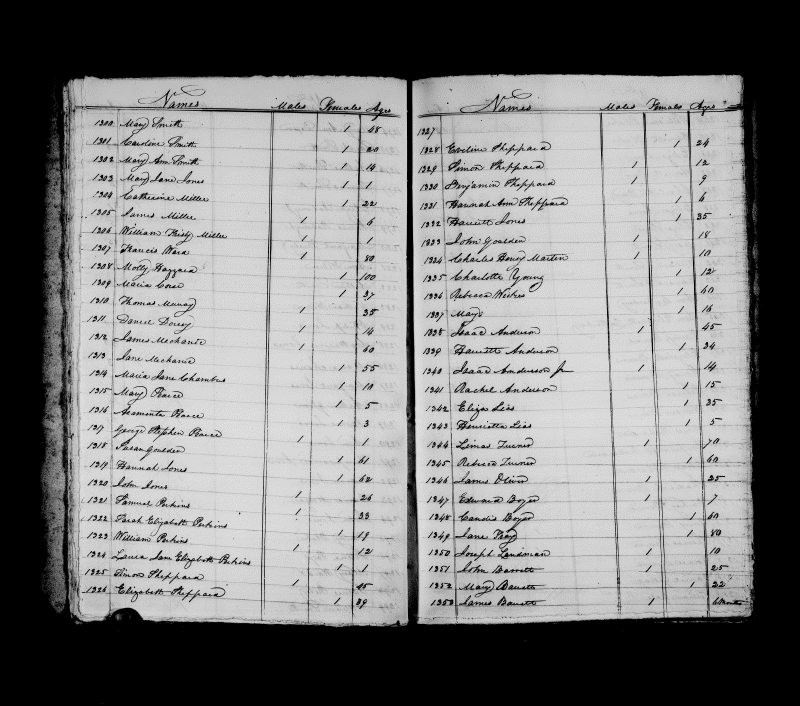 Names Males Females Ages
1300 Mary Smith 1 48
1301 Caroline Smith 1 20
1302 Mary Ann Smith 1 14
1303 Mary Jane Jones 1 1
1304 Catherine Miller 1 22
1305 James Miller 1 6
1306 William Miller 1 1
1307 Francis Ward 1 80
1308 Molly Hazzard 1 100
1309 Maria Cose 1 37
1310 Thomas Murray 1 35
1311 Daniel Dorsey 1 14
1312 James Mechanic 1 60
1313 Jane Mechanic 1 55
1314 Maria Jane Chambers 1 10
1315 Mary Reace 1 5
1316 Araminta Reace 1 3
1317 George Stephen Reace 1 1
1318 Susan Goulden 1 61
1319 Hannah Jones 1 62
1320 John Jones 1 26
1321 Samuel Perkins 1 33
1322 Sarah Elizabeth Perkins 1 19
1323 William Perkins 1 12
1324 Laura Jane Elizabeth Perkins 1 1
1325 Simon Sheppard 1 45
1326 Elizabeth Sheppard 1 39
Names Males Females Ages
1327
1328 Eveline Sheppard 1 24
1329 Simon Sheppard 1 12
1330 Benjamin Sheppard 1 9
1331 Hannah Ann Sheppard 1 6
1332 Harriett Jones 1 35
1333 John Goulden 1 18
1334 Charles Henry Martin 1 10
1335 Charlotte Young 1 12
1336 Rebecca Weekes 1 60
1337 Mary 1 16
1338 Isaac Anderson 1 45
1339 Harriett Anderson 1 34
1340 Isaac Anderson Jr 1 14
1341 Rachel Anderson 1 15
1342 Eliza Lias 1 35
1343 Henrietta Lias 1 5
1344 Limas Turner 1 70
1345 Rebecca Turner 1 60
1346 James Oliver 1 25
1347 Edward Boyer 1 7
1348 Candis Boyer 1 60
1349 Jane 1 80
1350 Joseph Landman 1 10
1351 John Barrett 1 25
1352 Mary Barrett 1 22
1353 James Barrett 1 6 Months